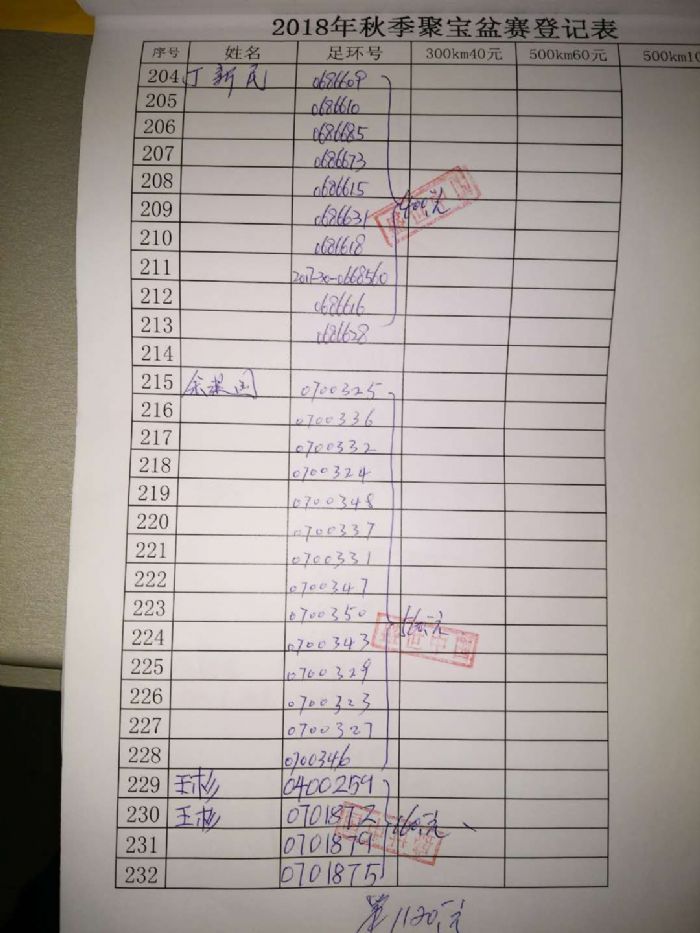 2018年秋季聚宝盆赛登记表
序号 姓名 足环号 300km40元 500km60元 500km10
204 丁新民 0686609
205 0686610
206 0686685
207 0686673
208 0686615
209 0686631 400元
210 0686618
211 2017-30-0668560
212 0686616
213 0686628
214
215 0700325
216 0700336
217 0700332
218 0700324
219 0700348
220 0700337
221 0700331
222 0700347
223 0700350
224 0700343 560元
225 0700329
226 0700323
227 0700327
228 0700346
229 王彬 0400259
230 王彬 0701872 160元
231 0701879
232 0701875
1120元